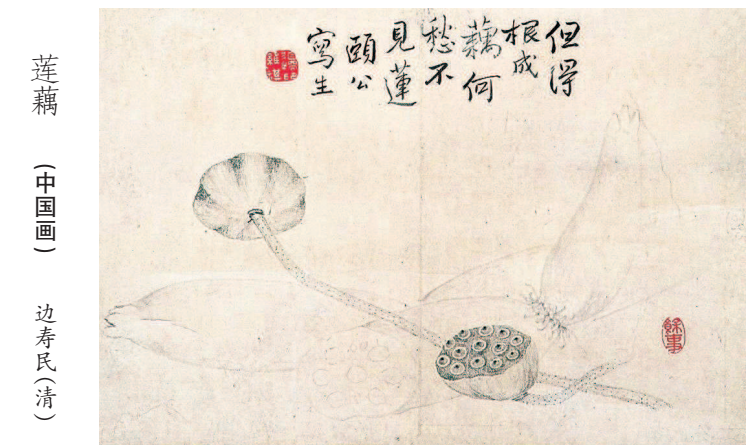 莲藕
(中国画)
边寿民(清)
但得
根成
藕何
愁不
見蓮
頤公
寫生
餘事